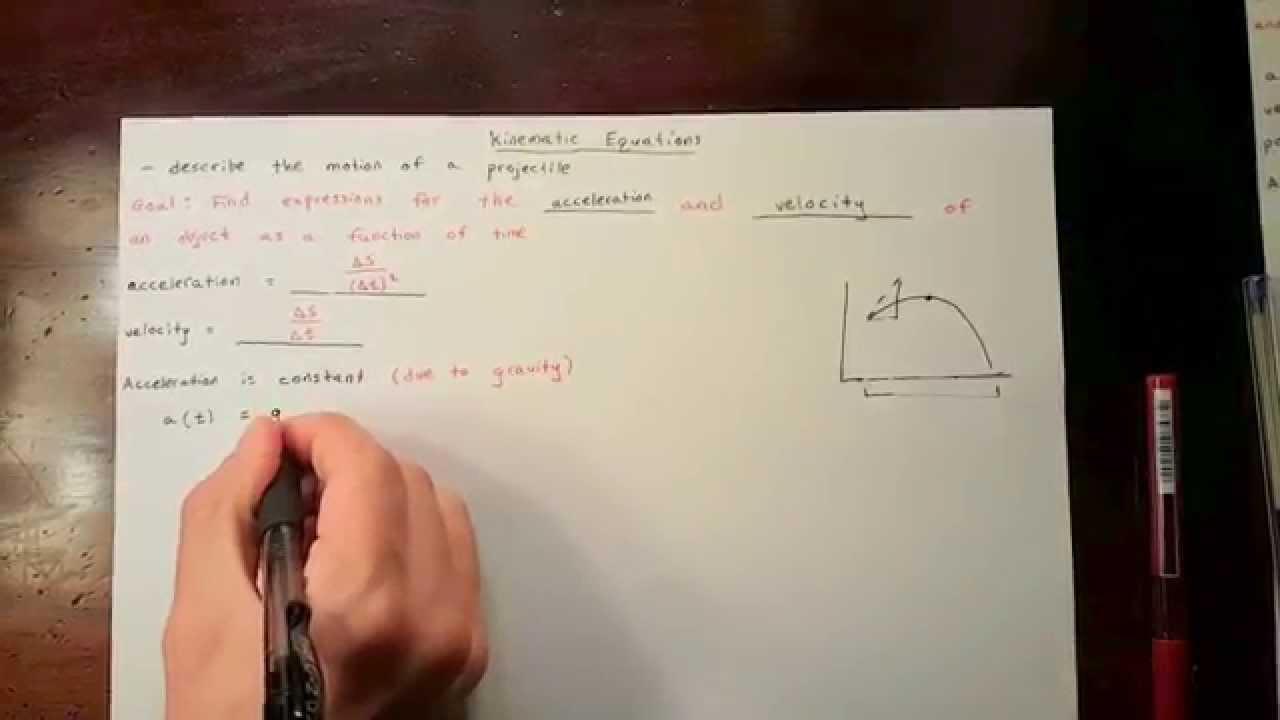 Kinematic Equations
- describe the motion of a projectile
Goal: Find expressions for the acceleration and velocity of
an object as a function of time
acceleration = ΔS/(Δt)²
velocity = ΔS/Δt
Acceleration is constant (due to gravity)
a(t) =